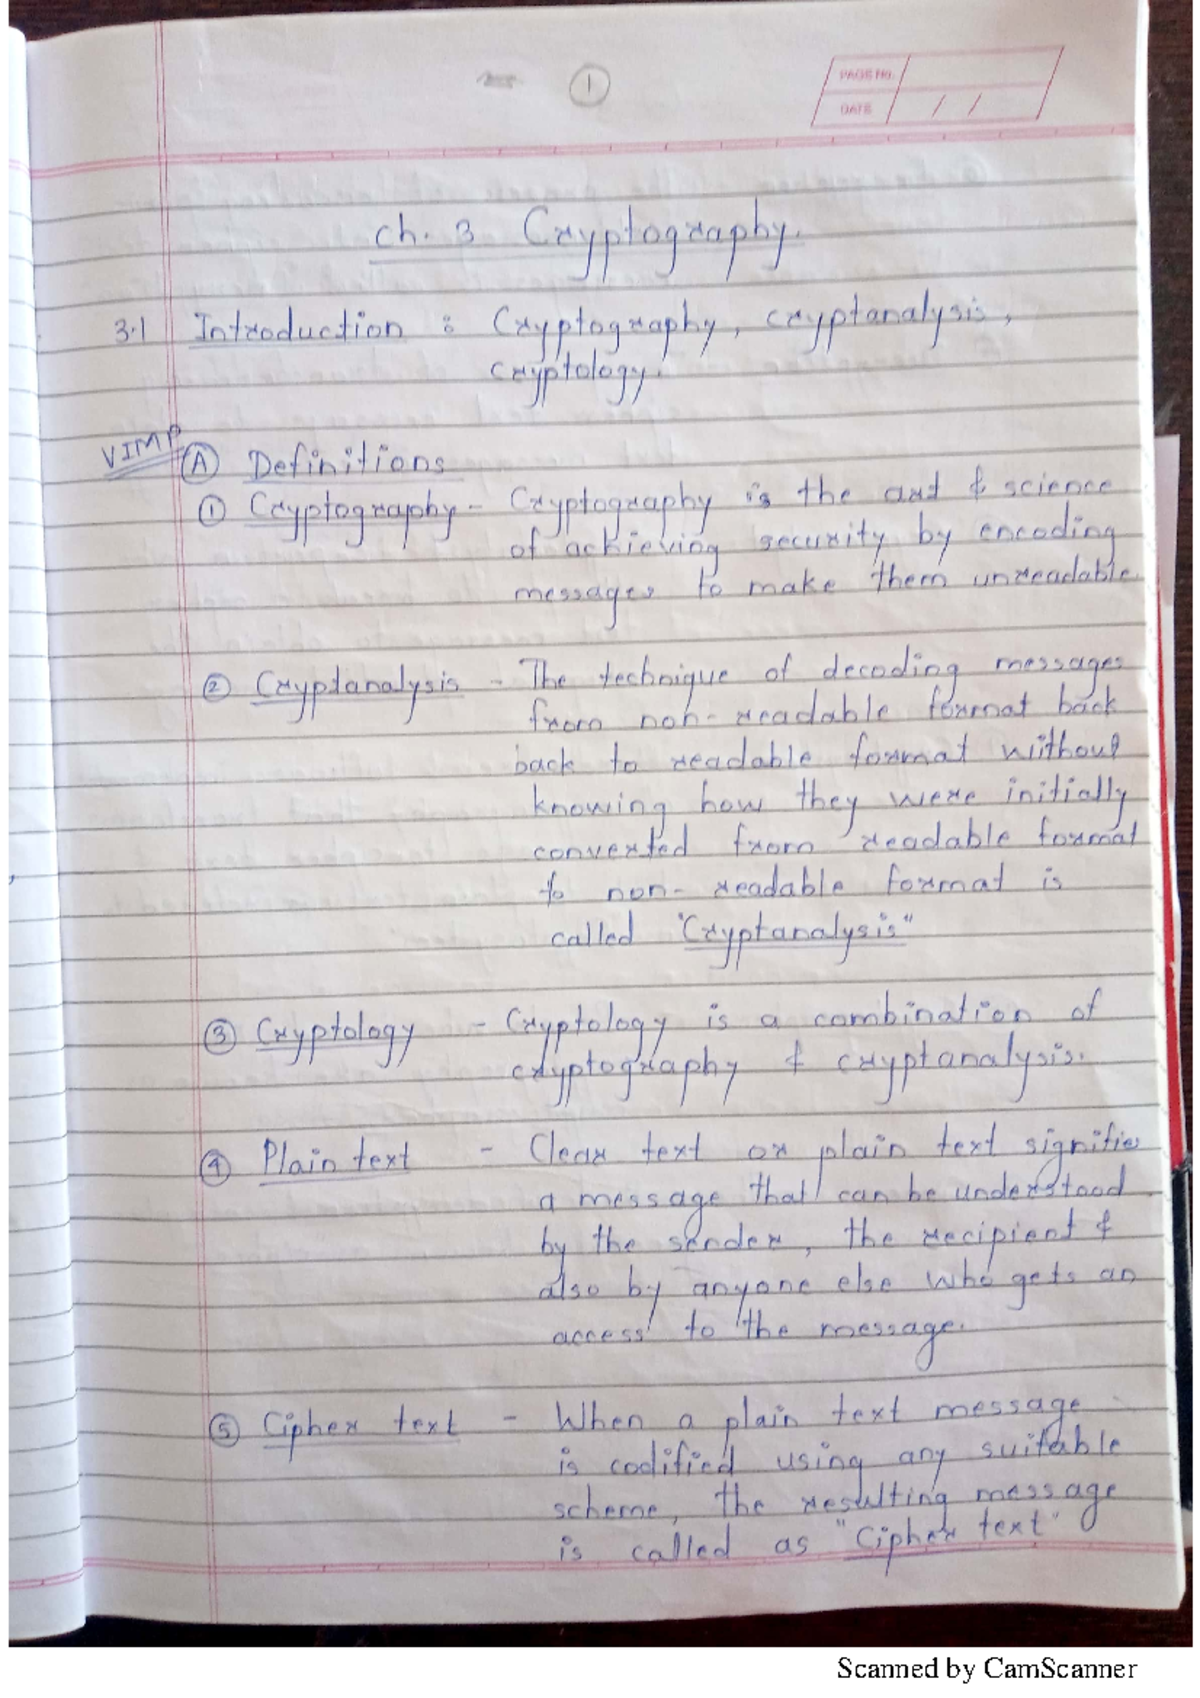 1
PAGE NO.
DATE / /
Ch. 3 Cryptography.
3.1 Introduction : Cryptography, cryptanalysis,
cryptology.
VIMP
A Definitions
1 Cryptography - Cryptography is the art & science
of achieving security by encoding
messages to make them unreadable.
2 Cryptanalysis - The technique of decoding messages
from non-readable format back
back to readable format without
knowing how they were initially
converted from readable format
to non-readable format is
called "Cryptanalysis"
3 Cryptology - Cryptology is a combination of
cryptography & cryptanalysis.
4 Plain text - Clear text or plain text signifies
a message that can be understood
by the sender, the recipient &
also by anyone else who gets an
access to the message.
5 Cipher text - When a plain text message
is codified using any suitable
scheme, the resulting message
is called as "Cipher text"
Scanned by CamScanner